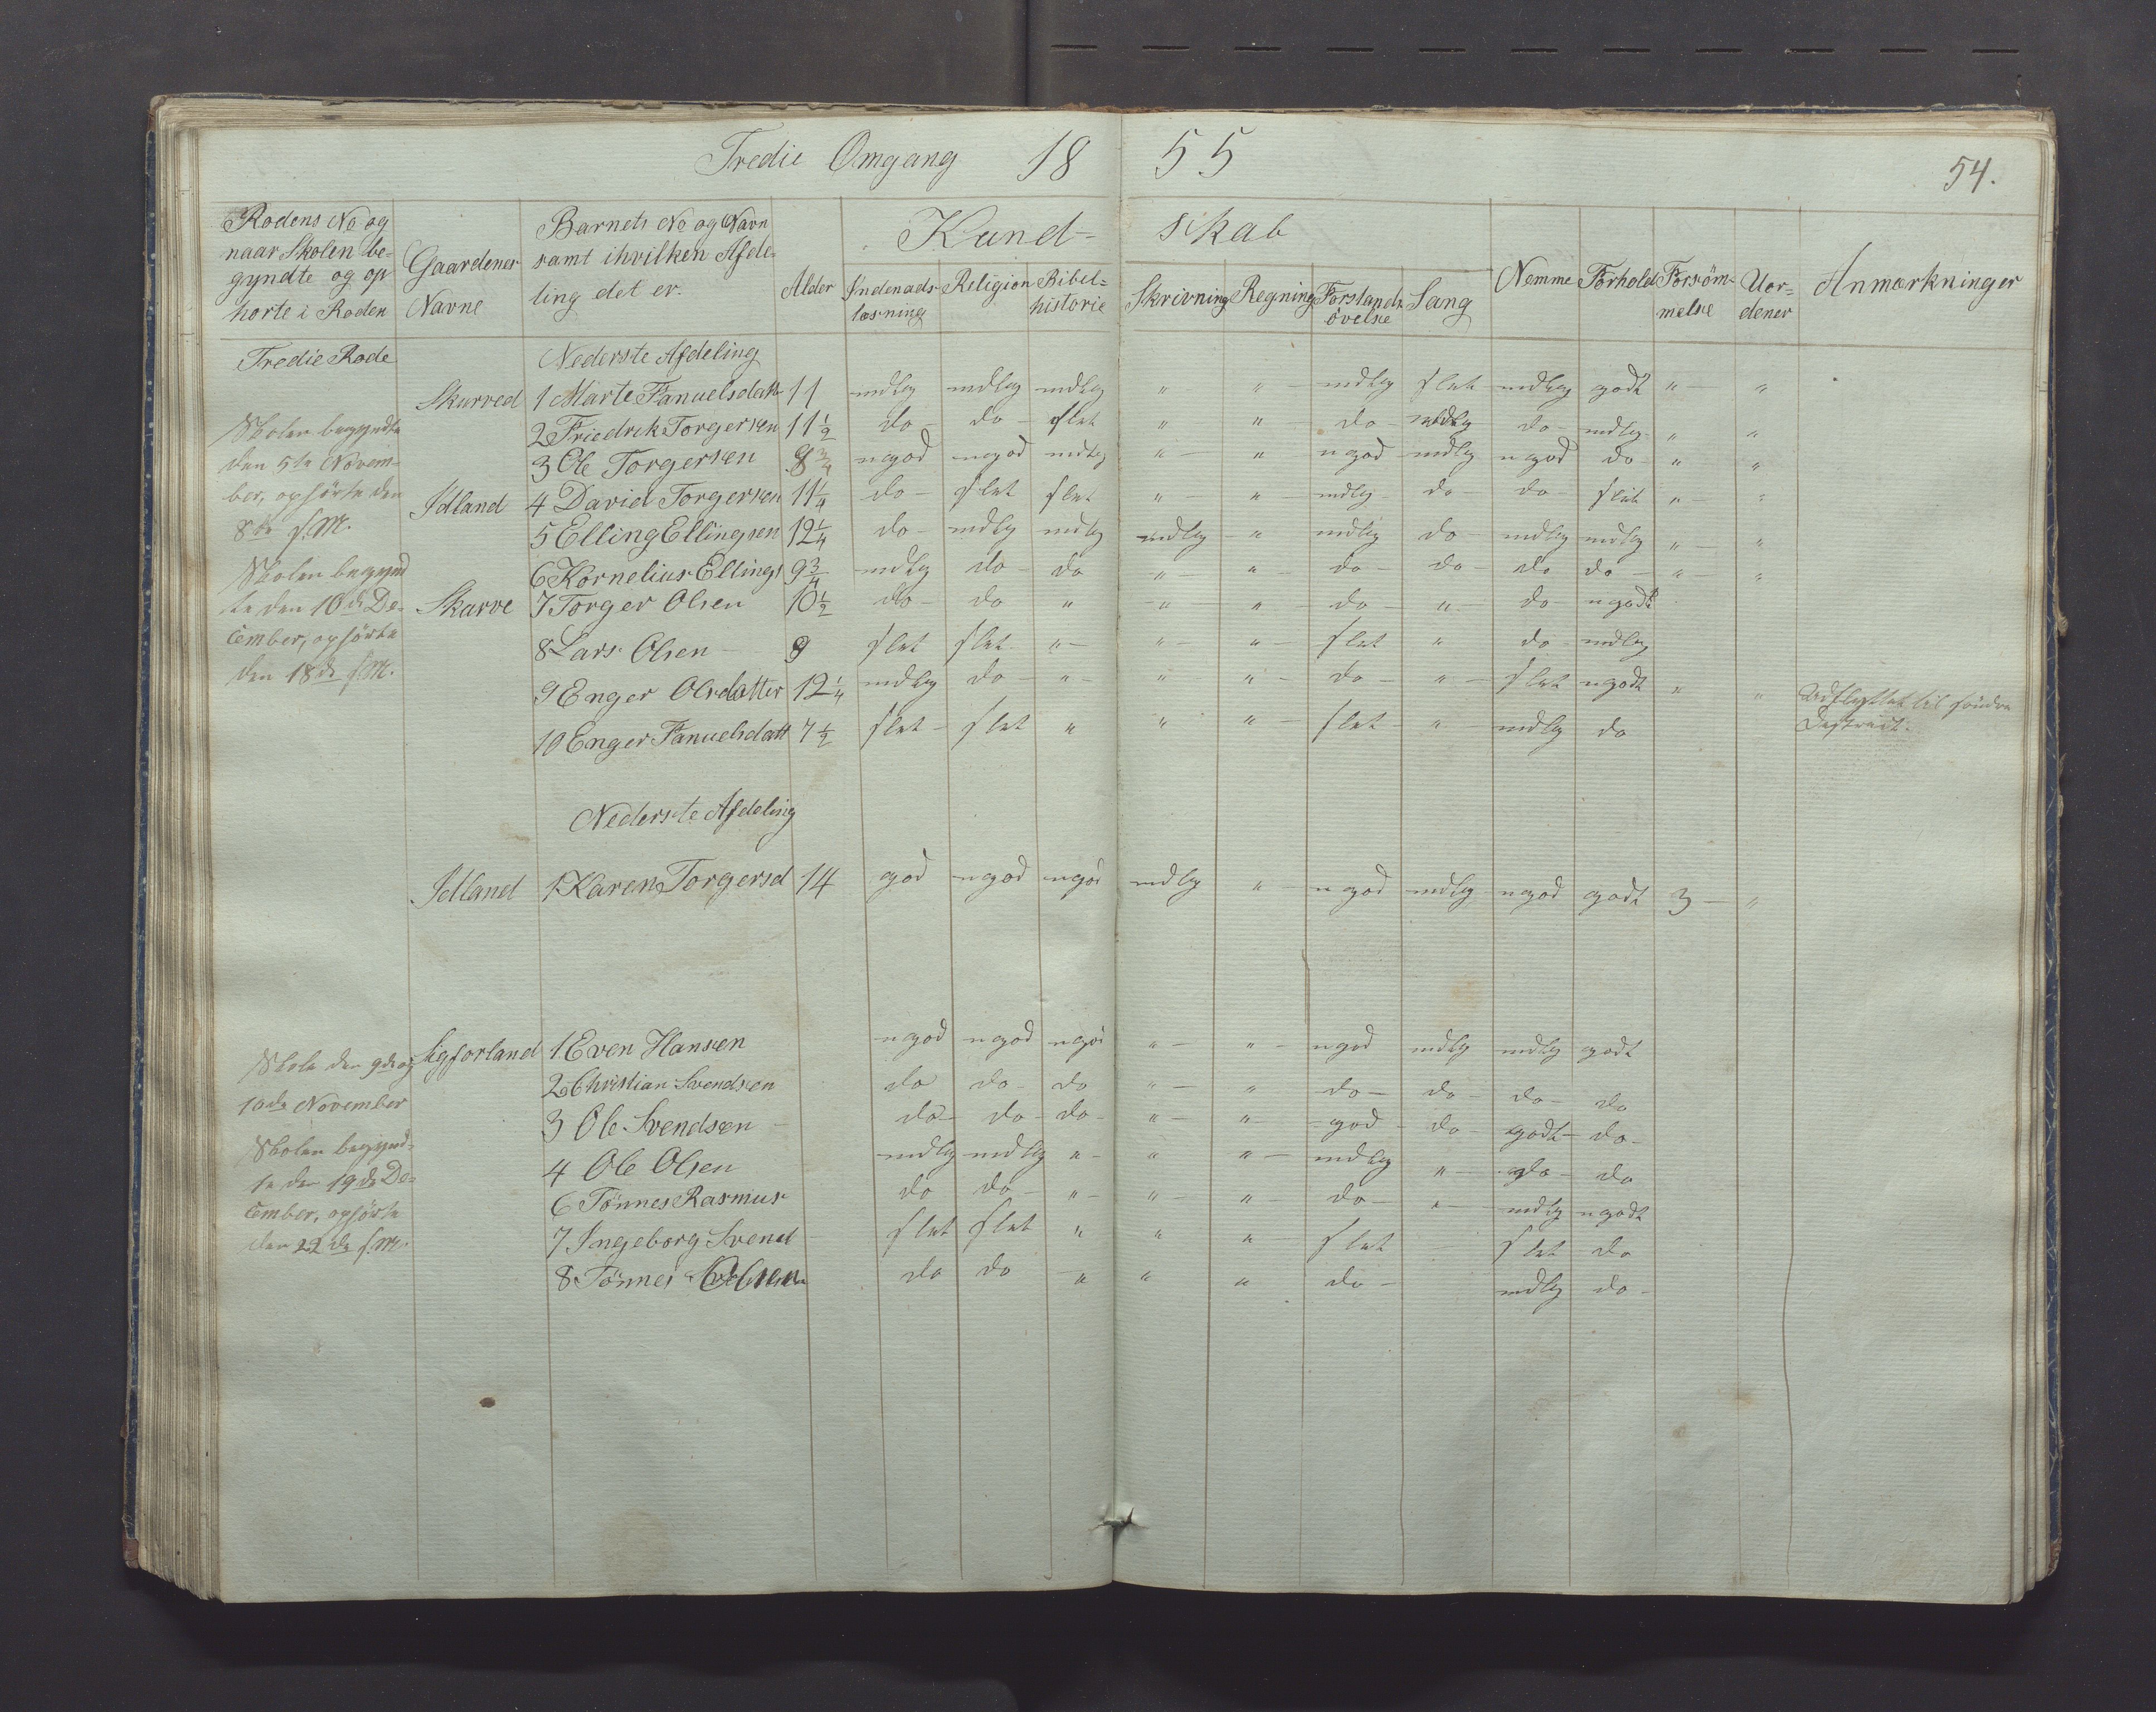 Tredie Omgang 18 55
54.
Rodens No og naar Skolen be- gyndte og op hørte i Roden | Gaardenes Navne | Barnets No og Navn samt ihvilken Afde- ling det er. | Alder | Kund- skab | Indenads læsning | Religion | Bibel= historie | Skrivning | Regning | Forstands øvelse | Sang | Nemme | Forhold | Forsøm- melse | Uor= dener | Anmærkninger
Tredie Rode
Nederste Afdeling
Skurved 1 Marte Fanuelsdatt 11 mdlg mdlg mdlg " " mdlg slet mdlg godt " "
2 Friedrik Torgersen 11 1/2 do do slet " " do mdlg do mdlg " "
3 Ole Torgersen 8 3/4 ngod ngod mdlg " " ngod mdlg ngod do " "
Idland 4 David Torgersen 11 1/4 do slet slet " " mdlg do do slet " "
5 Elling Ellingsen 12 1/4 do mdlg mdlg mdlg " mdlg do mdlg mdlg " "
6 Kornelius Ellings 9 3/4 mdlg do do " " do do do do " "
Skarve 7 Torger Olsen 10 1/2 do do " " " do " do ngodt
8 Lars Olsen 9 slet slet " " " slet " do mdlg
9 Enger Olsdatter 12 1/4 mdlg do " " " do " slet ngodt " " Udflyttet til søndre
10 Enger Fanuelsdatt 7 1/2 slet slet " " " slet " mdlg do Destrict.
Skolen begyndte
den 5te Novem-
ber, ophørte den
8de s. M.
Skolen begynd
te den 10de De-
cember, ophørte
den 18de s. M.
Nederste Afdeling
Idland 1 Karen Torgersd 14 god ngod ngod mdlg " ngod mdlg ngod godt 3 "
Skole den 9de og
10de November
Skolen begynd-
te den 19de De-
cember, ophørte
den 22de s. M.
Ligforland 1 Even Hansen ngod ngod ngod " " ngod mdlg mdlg godt
2 Christian Svendsen do do do " " do do do do
3 Ole Svendsen do do do " " god do godt do
4 Ole Olsen mdlg mdlg " " " mdlg " do do
6 Tönnes Rasmus do do " " " do " mdlg ngodt
7 Ingeborg Svend slet slet " " " slet slet do
8 Tönnes do do " " " do mdlg do